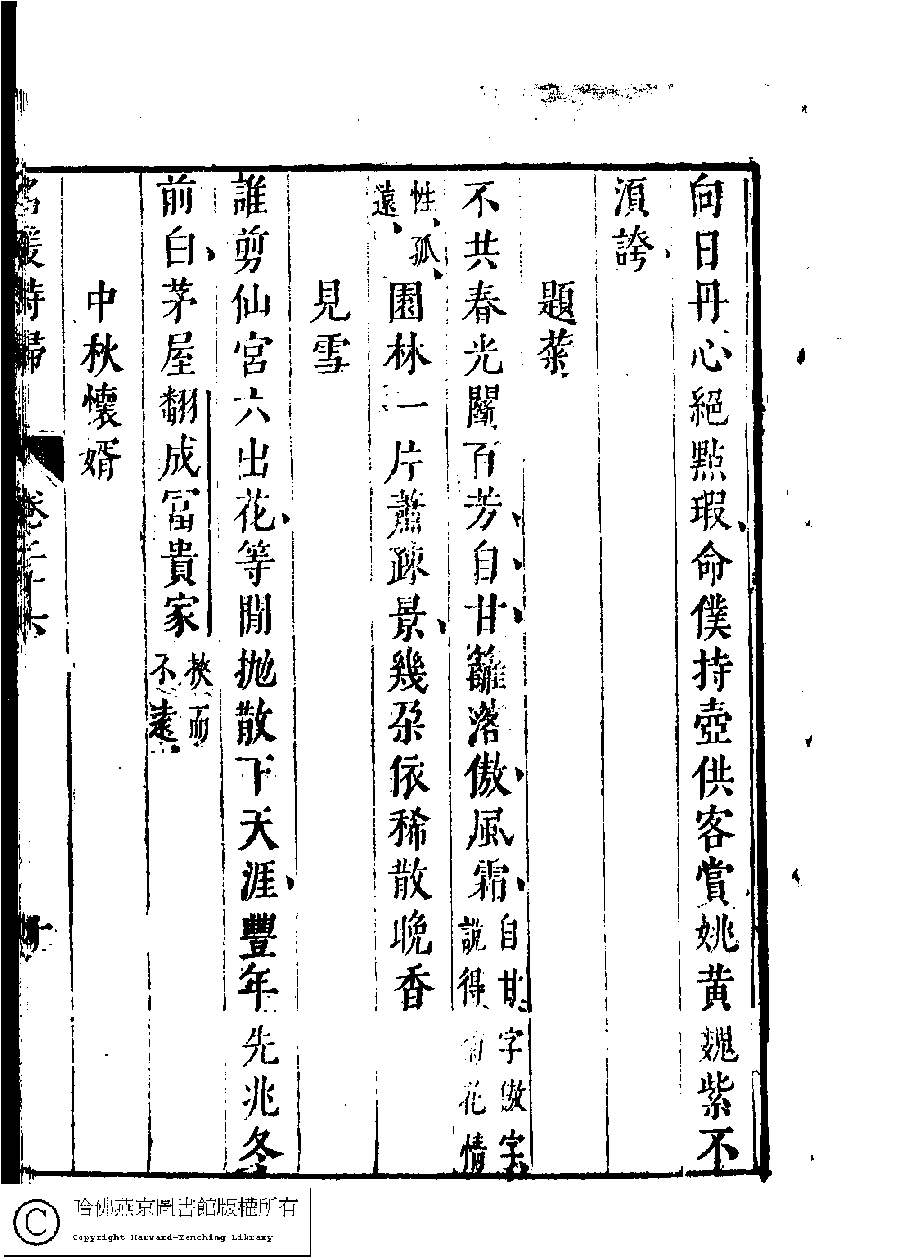 向日丹心絕點瑕命僕持壺供客賞姚黃魏紫不
湏誇
題菜
不共春光鬬百芳自甘籬落傲風霜自甘字傲字
說得花情
性孤
遠
園林一片蕭踈景幾朶依稀散晚香
見雪
誰剪仙宮六出花等閒拋散下天涯豐年先兆冬
前白茅屋翻成冨貴家
挾而
不遠
中秋懷婿
名媛詩歸
卷二十六
十
哈佛燕京圖書館版權所有
Copyright Harvard-Yenching Library